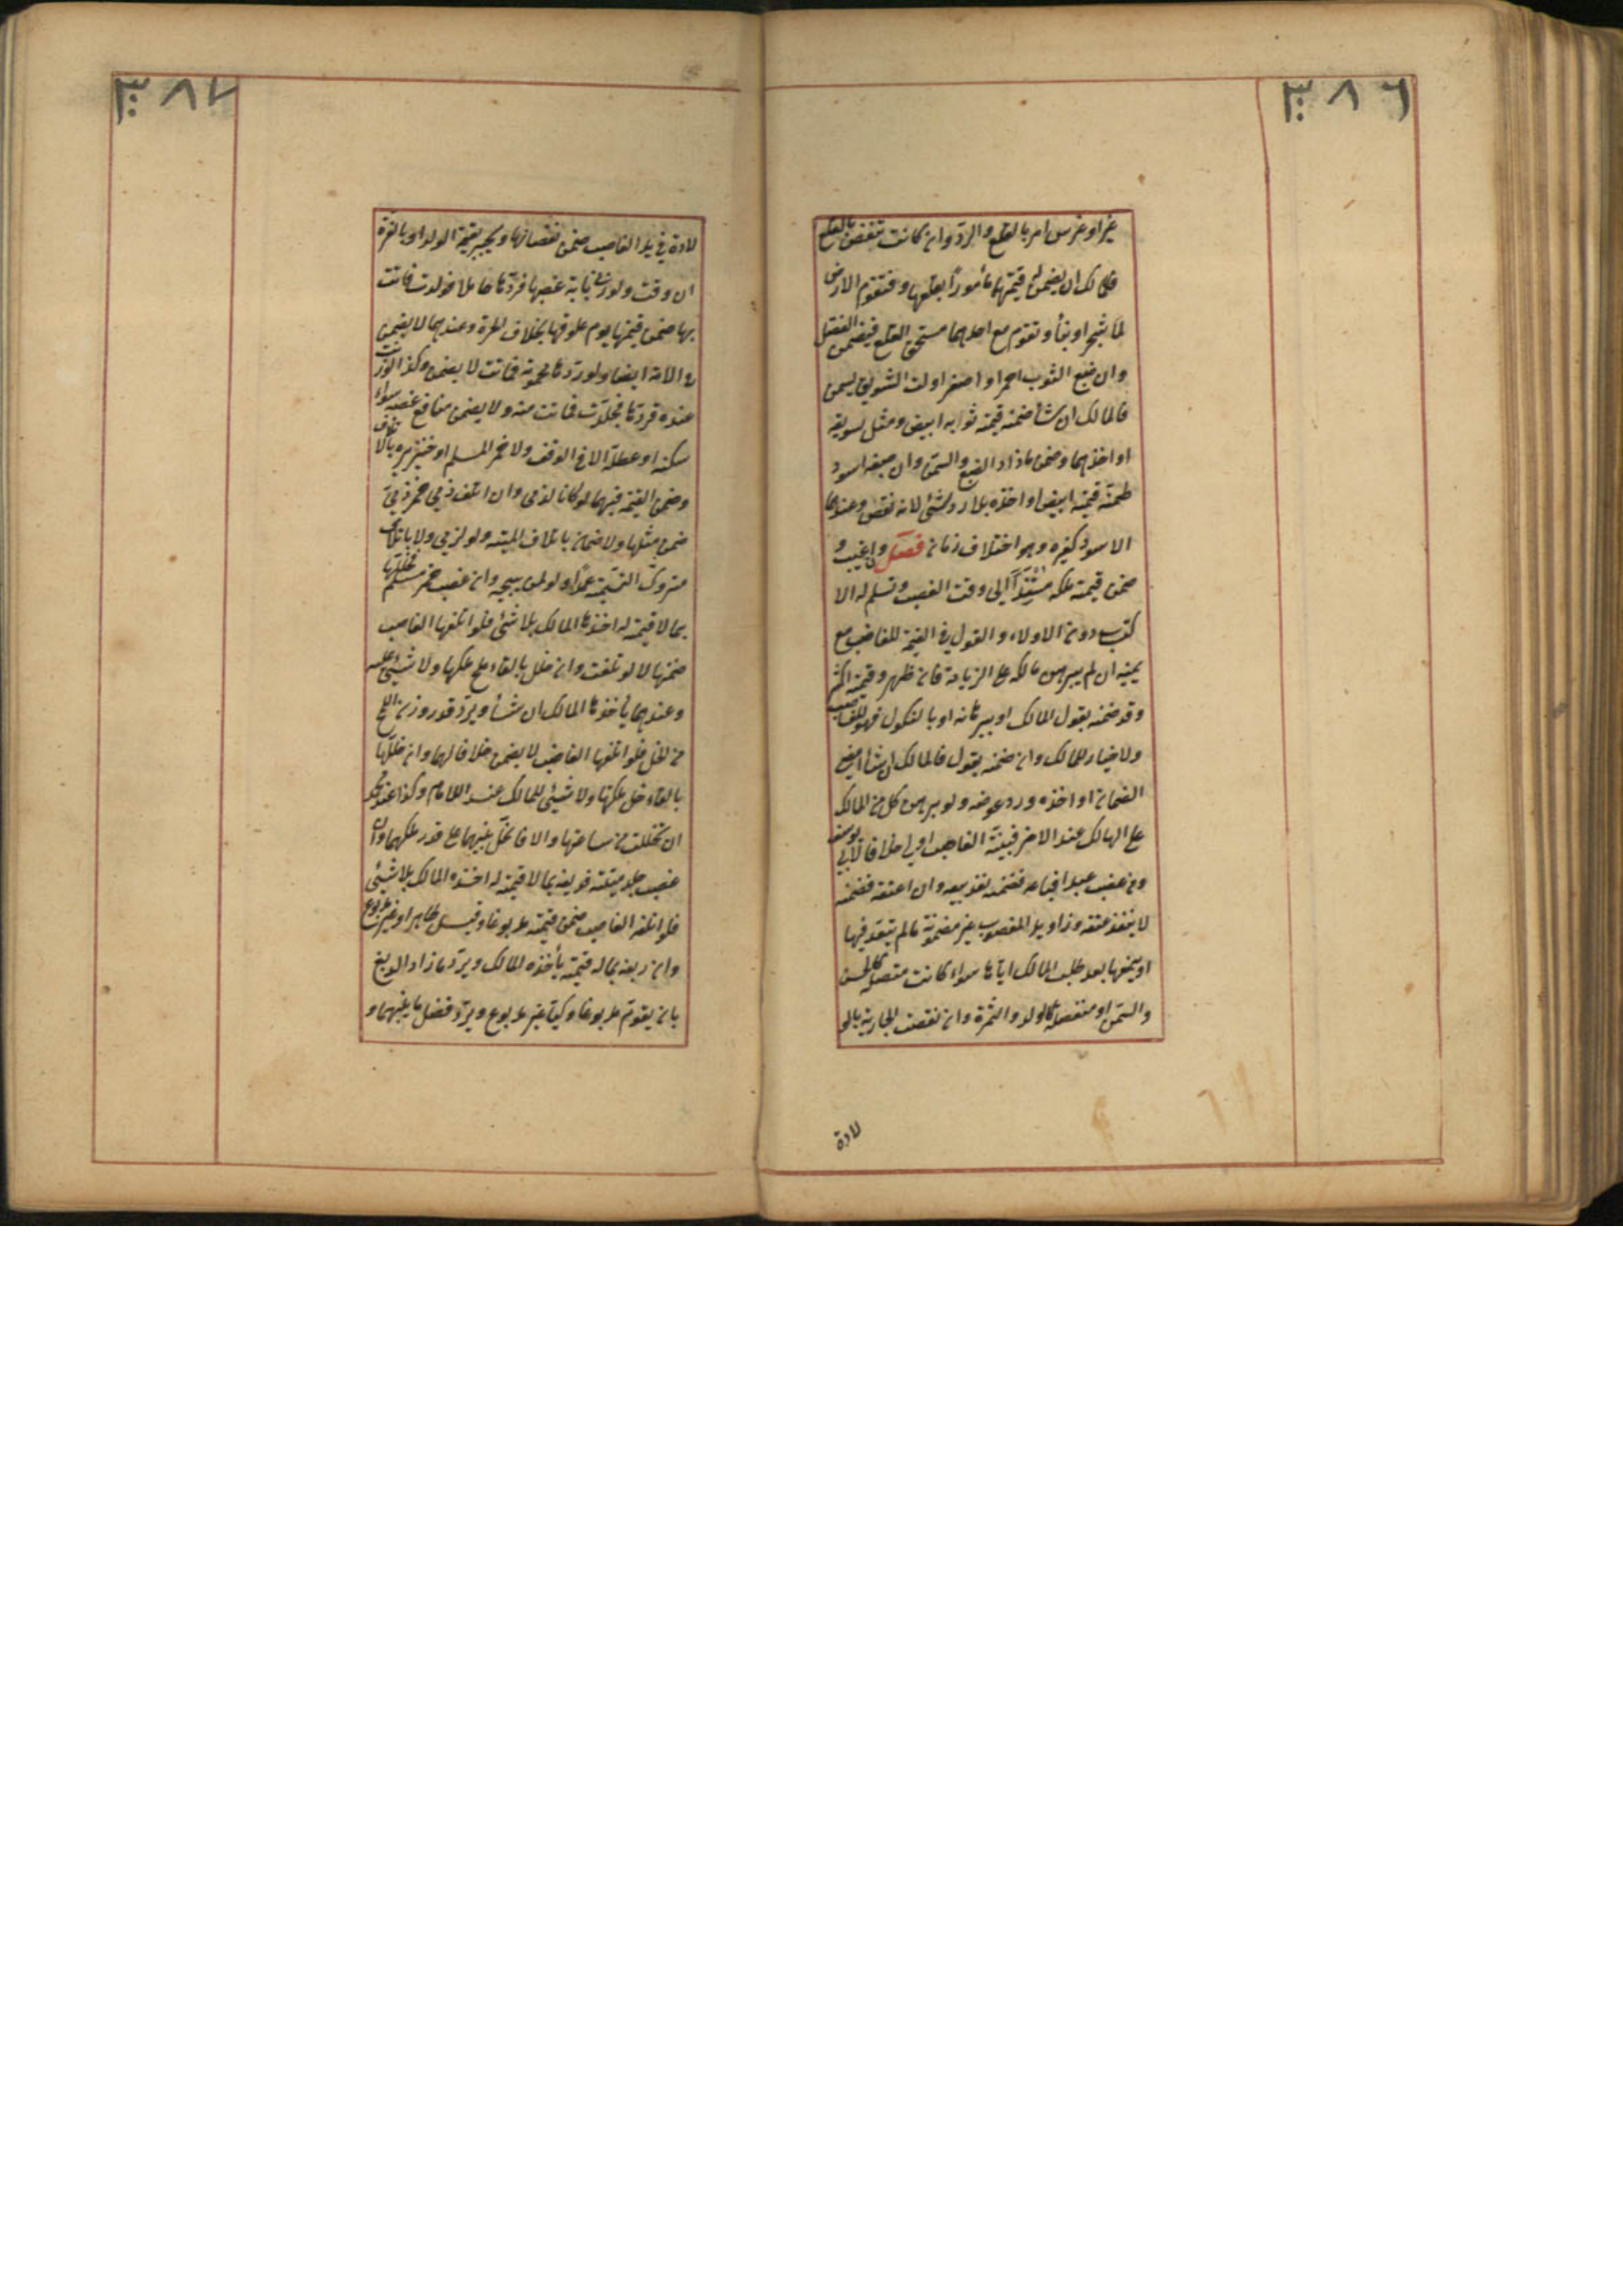 ٣٨٦
غيرا وغرس امر بالقلع والرد وان كانت تنقص بالقلع
فللمالك ان يضمن له قيمتها مأمورا بقلعها وفتقوم الارض
بلا شجر او بنأ وتقوم مع احدهما مستحق القلع فيضمن الفضل
وان صبغ الثوب احمر او اصفر اولت السويق بسمن
فالمالك ان شأ ضمنه قيمة ثوابه ابيض ومثل سويقه
او اخذهما وضمن ما زاد الصبغ والسمن وان صبغه اسود
ضمنه قيمته ابيض او اخذه بلا رد شئ لانه نقص وعندهما
الاسود كغيره وهو اختلاف زمان فصل ولو غيب و
ضمن قيمته ملكه مستندا الى وقت الغصب وتسلم له الا
كتسب دون الاولاد والقول في القيمة للغاصب مع
يمينه ان لم يبرهن مالكه على الزيادة فان ظهر وقيمته اكثر
وقد ضمنه بقول المالك او ببرهانه او بالنكول فهو للغاصب
ولا خيار للمالك وان ضمنه بقوله فالمالك ان شاء امضى
الضمان او اخذه ورد عوضه ولو برهن كل من المالك
على الهالك عند الاخر فبينة الغاصب اولى خلافا لابي يوسف
ومن غصب عبدا فباعه فضمنه نفذ بيعه وان اعتقه فضمنه
لا ينفذ عتقه وزوايد المغصوب غير مضمونة مالم يتعد فيها
او يمنعها بعد طلب المالك اياها سواء كانت متصلة كالحسن
والسمن او منفصلة كالولد والثمرة وان نقصت الجارية بالو
لادة
٣٨٧
لادة في يد الغاصب ضمن نقصانها ويجبر بقيمة الولد او بالغرة
ان وفت ولو زنى بامة غصبها فردها حاملا فولدت فماتت
بها ضمن قيمتها يوم علوقها بخلاف الحرة وعندهما لا يضمن
في الامة ايضا ولو ردها محمومة فماتت لا يضمن وكذا لو زنت
عنده فردها فجلدت فماتت منه ولا يضمن منافع غصبه سواء
سكنه او عطله الا في الوقف ولا خمر المسلم او خنزيره بالاتلاف
وضمن القيمة فيهما لو كانا لذمي وان اتلف ذمي خمر ذمي
ضمن مثلها ولا ضمان باتلاف الميتة ولو لذمي ولا باتلاف
متروك التسمية عمدا ولو لمن يبيحه وان غصب خمر مسلم فخللها
بما لا قيمة له اخذها المالك بلا شئ فلو اتلفها الغاصب
ضمنها لا لو تلفت وان خلل بالقاء ملح ملكها ولا شئ عليه
وعندهما يأخذها المالك ان شأ ويرد قدر وزن الملح
من الخل فلو اتلفها الغاصب لا يضمن خلافا لهما وان خللها
بالقاء خل ملكها ولا شئ للمالك عند الامام وكذا عند محمد
ان تخللت من ساعتها والا فالخل بينهما على قدر ملكهما وان
غصب جلد ميتة فدبغه بما لا قيمة له اخذه المالك بلا شئ
فلو اتلفه الغاصب ضمن قيمته مدبوغا وقيل طاهرا وغير مدبوغ
وان دبغه بما له قيمة يأخذه المالك ويرد ما زاد الدبغ
بان يقوم مدبوغا وذكيا غير مدبوغ ويرد فضل ما بينهما و